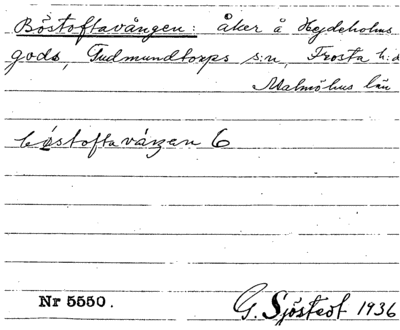 Böstoftavången: åker å Hejdeholms
gods, Gudmundtorps s:n, Frosta h:d
Malmöhus län
bøstoftavången 6
Nr 5550.
G. Sjöstedt 1936